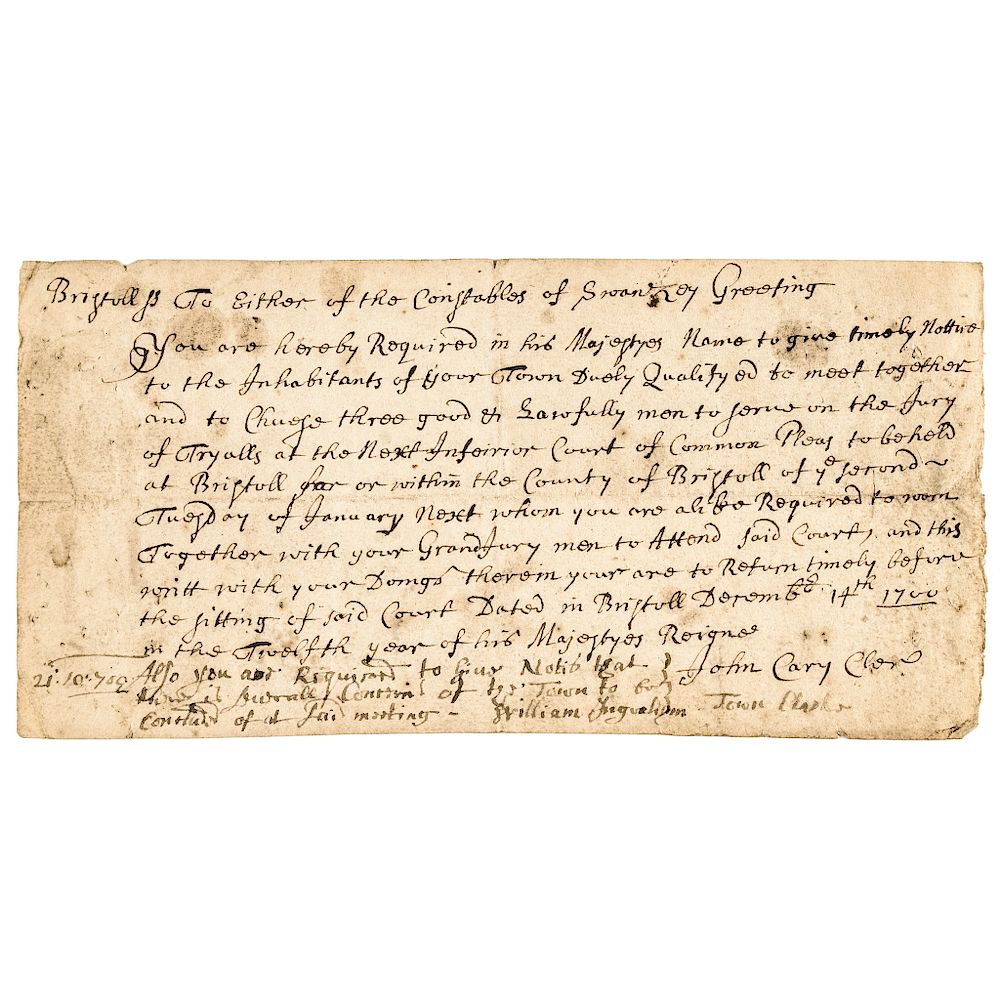 Bristoll ss To Either of the Constables of Swanzey Greeting
You are hereby Required in his Majestyes Name to give timely Nottice
to the Inhabitants of your Town Duely Qualifyed to meet together
and to Chuese three good & Lawfully men to serve on the Jury
of Tryalls at the Next Infeirior Court of Common Pleas to be held
at Bristoll for or within the County of Bristoll of ye second
Tuesday of January Next whom you are alike Required to
Together with your Grand Jury men to Attend said Court, and this
writt with your Doings therein your are to Return timely before
the sitting of said Court Dated in Bristoll Decembr 14th 1700
in the Twelfth year of his Majestyes Reigne
John Cary Cler
21: 10: 700 Also you are Required to Give Notis that
there is severall Concerns of the Town to be
Concluded of at said meeting - William Ingraham Town Clarke